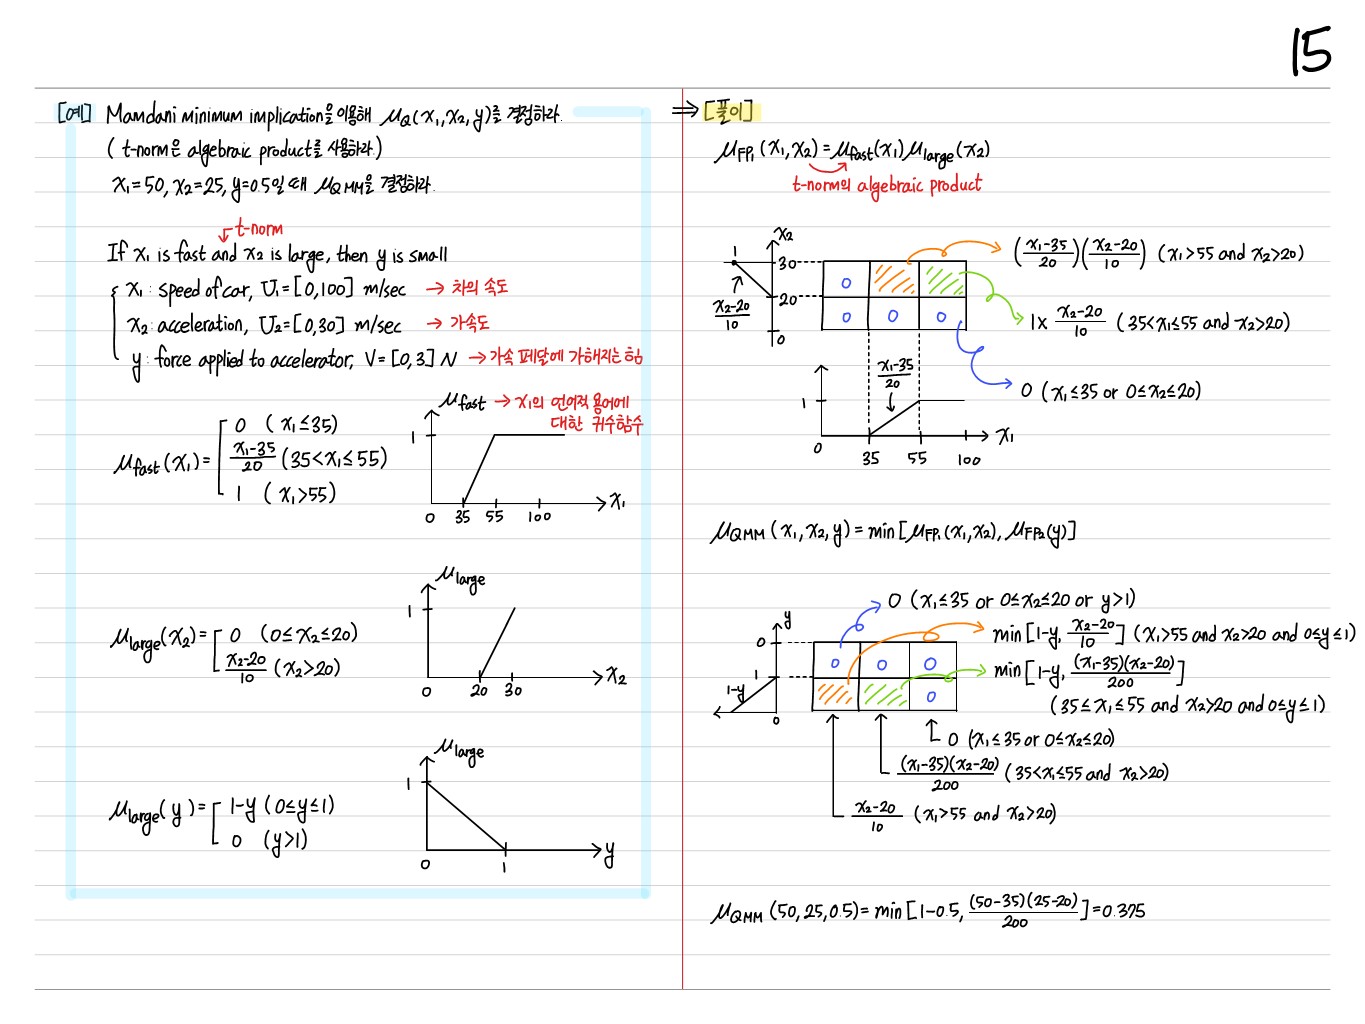 15
[예] Mamdani minimum implication을 이용해 μQ(x₁, x₂, y)를 결정하라.
( t-norm은 algebraic product를 사용하라.)
x₁=50, x₂=25, y=0.5일 때 μQMM을 결정하라.
t-norm
If x₁ is fast and x₂ is large, then y is small
x₁ : speed of car, U₁=[0,100] m/sec → 차의 속도
x₂ : acceleration, U₂=[0,30] m/sec → 가속도
y : force applied to accelerator, V=[0,3] N → 가속 페달에 가해지는 힘
μfast(x₁)=
0 (x₁≤35)
x₁-35/20 (35<x₁≤55)
1 (x₁>55)
μfast → x₁의 언어적 용어에
대한 귀수함수
1
0 35 55 100 x₁
μlarge(x₂)=
0 (0≤x₂≤20)
x₂-20/10 (x₂>20)
μlarge
1
0 20 30 x₂
μlarge(y)=
1-y (0≤y≤1)
0 (y>1)
μlarge
1
0 1 y
⇒ [풀이]
μFP₁(x₁, x₂)=μfast(x₁)μlarge(x₂)
t-norm의 algebraic product
1 x₂
30
20
0
x₂-20/10
0
0 0 0
(x₁-35/20)(x₂-20/10) (x₁>55 and x₂>20)
1× x₂-20/10 (35<x₁≤55 and x₂>20)
0 (x₁≤35 or 0≤x₂≤20)
x₁-35/20
1
0 35 55 100 x₁
μQMM(x₁, x₂, y)=min[μFP₁(x₁, x₂), μFP₂(y)]
0 (x₁≤35 or 0≤x₂≤20 or y>1)
min[1-y, x₂-20/10] (x₁>55 and x₂>20 and 0≤y≤1)
min[1-y, (x₁-35)(x₂-20)/200]
(35≤x₁≤55 and x₂>20 and 0≤y≤1)
y
0
1
0
1-y
0 0 0
0
0 (x₁≤35 or 0≤x₂≤20)
(x₁-35)(x₂-20)/200 (35<x₁≤55 and x₂>20)
x₂-20/10 (x₁>55 and x₂>20)
μQMM(50, 25, 0.5)=min[1-0.5, (50-35)(25-20)/200]=0.375